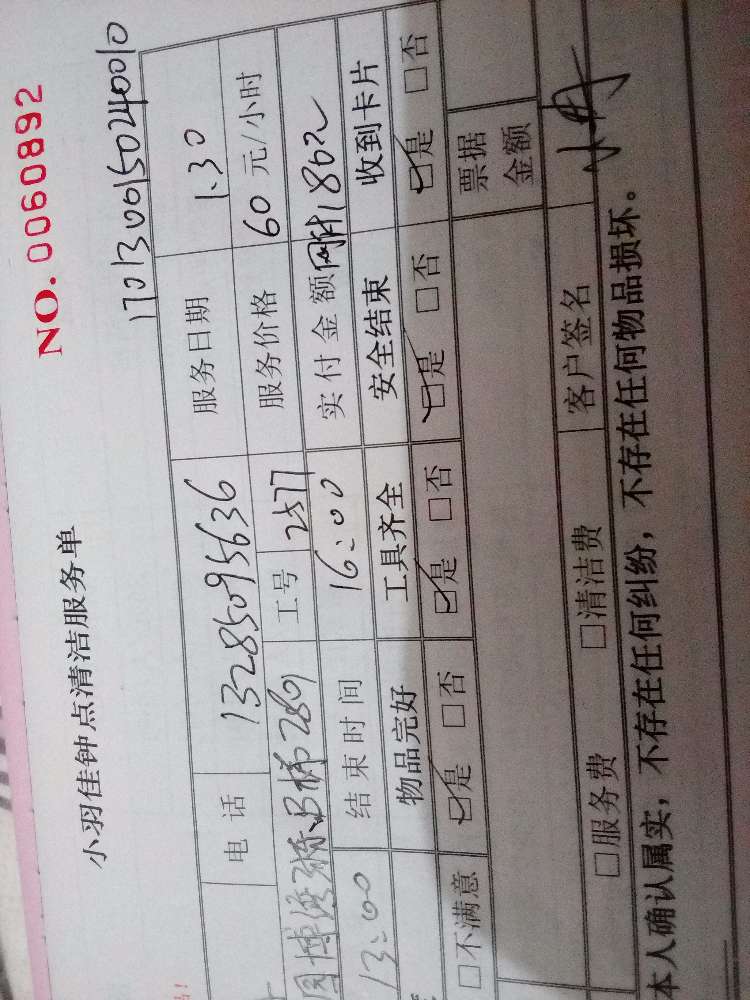 NO.0060892
小羽佳钟点清洁服务单
1701300150240010
电 话 13285095636 服务日期 1.30
园博湾 栋 B梯2801 工号 2577 服务价格 60 元/小时
13:00 结束时间 16:00 实付金额 网付180元
物品完好 工具齐全 安全结束 收到卡片
□不满意 ☑是 □否 ☑是 □否 ☑是 □否 ☑是 □否
票据金额
□服务费 □清洁费 客户签名
本人确认属实，不存在任何纠纷，不存在任何物品损坏。